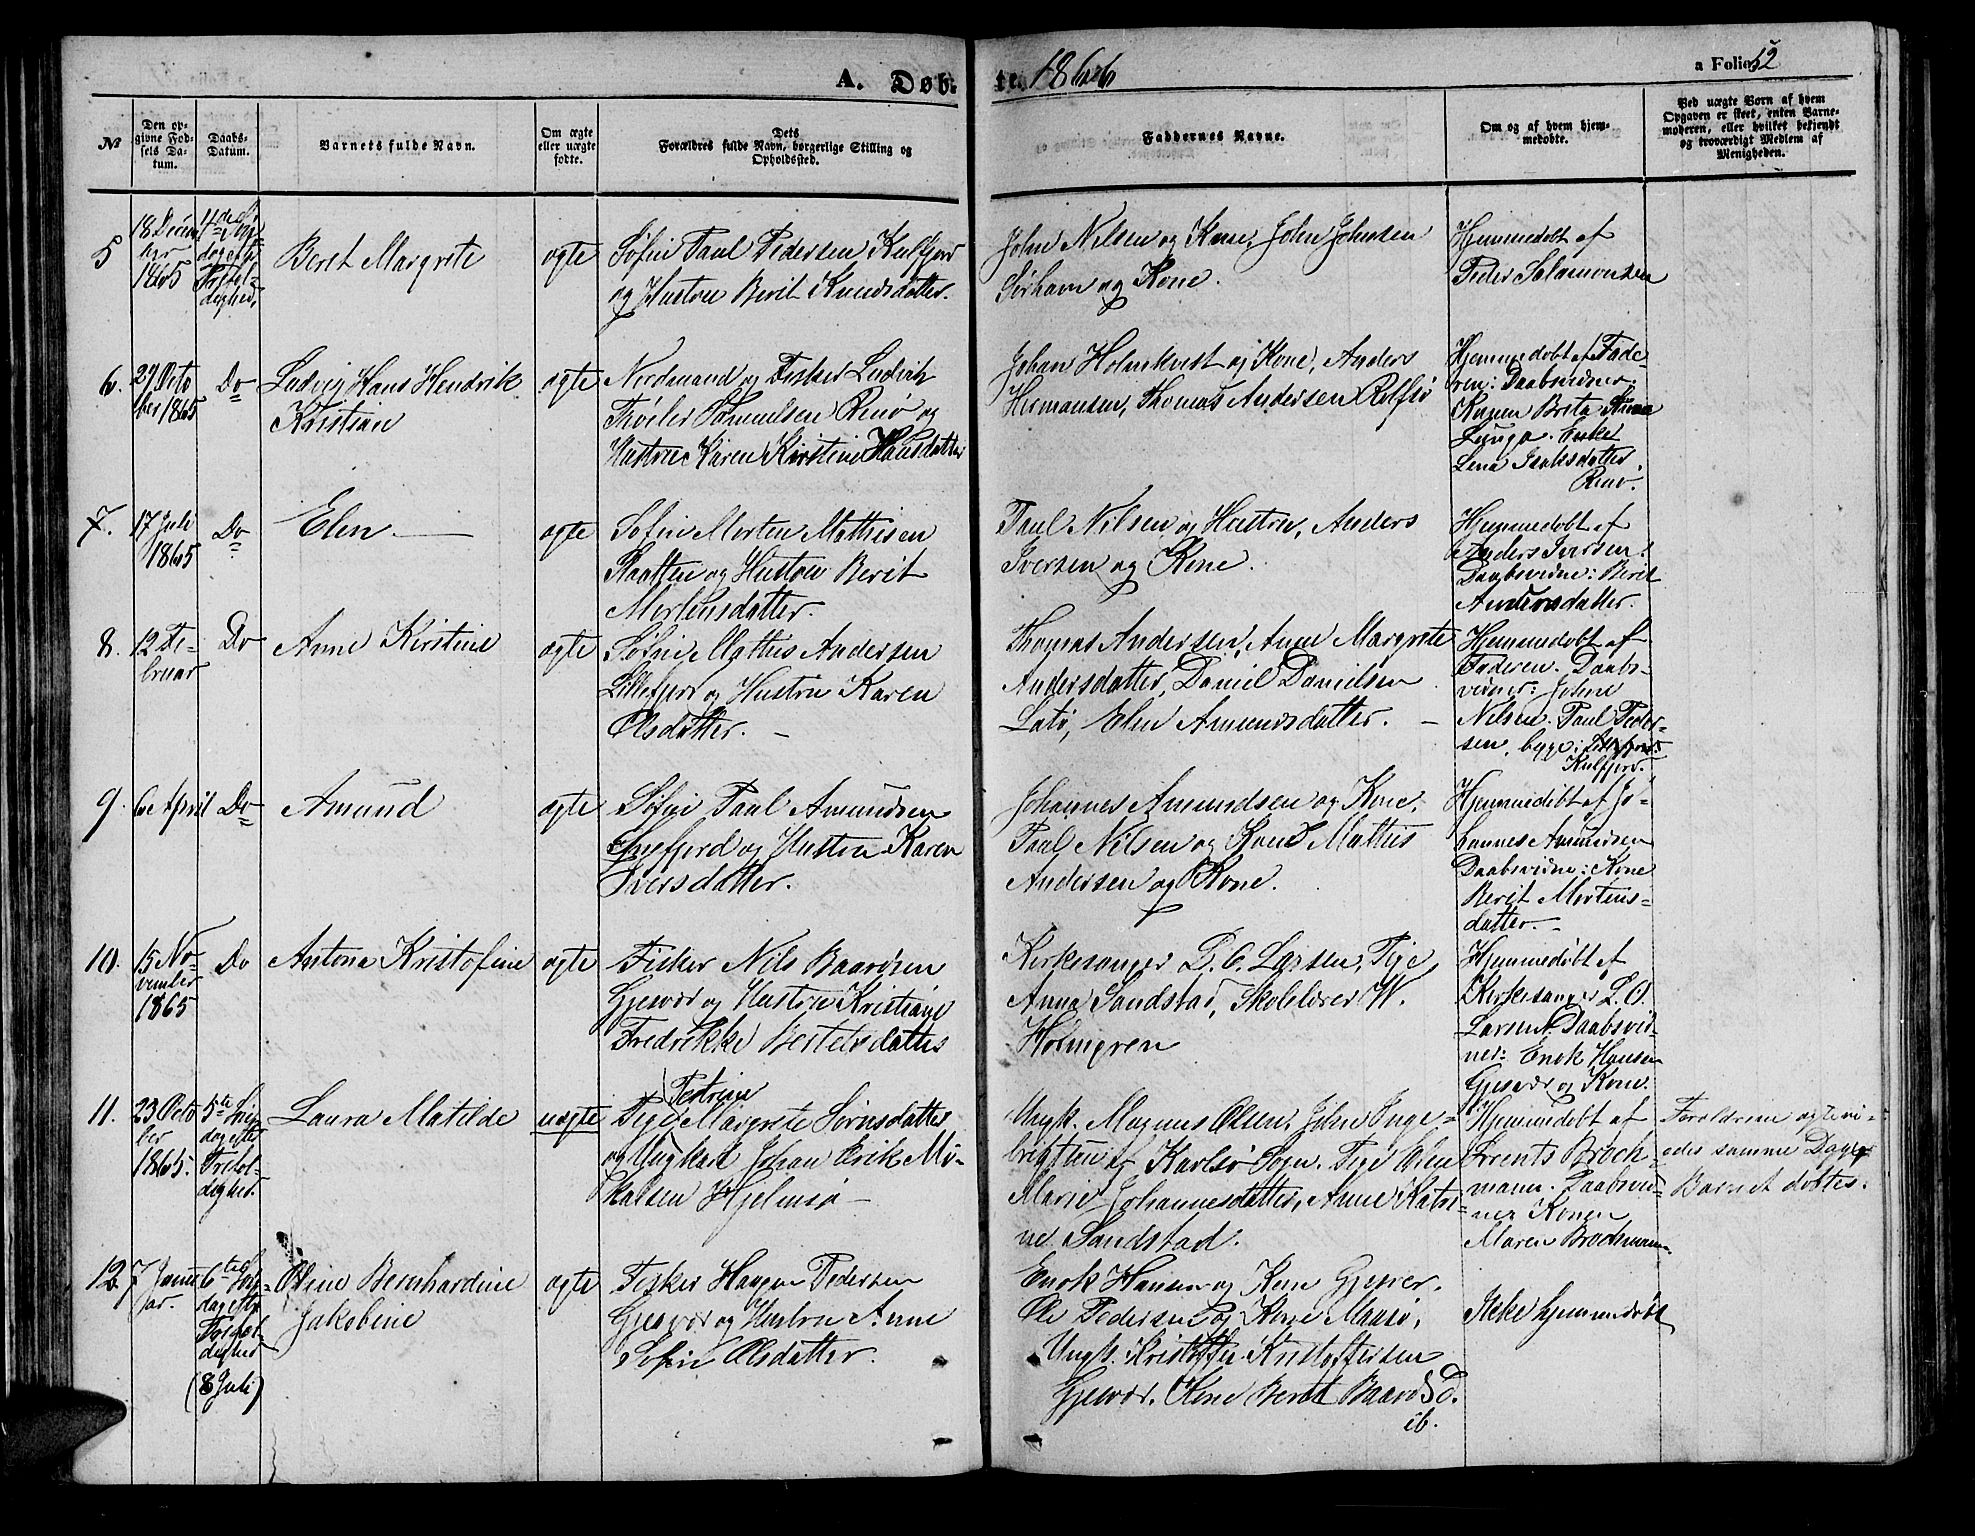 A. Døb-
te. 1866
a Folio 52
№
Den op-
givne Fød-
sels Da-
tum.
Daabs-
Datum.
Barnets fulde Navn.
Om ægte
eller uægte
fødte.
Dets
Forældres fulde Navn, borgerlige Stilling og
Opholdssted.
Faddernes Navne.
Om og af hvem hjem-
medøbte.
Ved uægte Børn af hvem
Opgaven er skeet, enten Barne-
moderen, eller hvilket bekjendt
og troværdigt Medlem af
Menigheden.
5
18 Decem
ber
1865
4de Søn
dag efter
Trefol-
dighed.
Beret Margrete
ægte
Søfin Paul Pedersen Kulfjord
og Hustru Berit Knudsdatter.
John Nilsen og Kone, John Johnsen
Sørhavn og Kone.
Hjemmedøbt af
Peder Salamonsen
6.
29 Octo
ber 1865
Do
Ludvig Hans Hendrik
Kristian
ægte
Nordmand og Fisker Ludvik
Samuelsen Renø og
Hustrue Karen Kirstine Hansdatter
Johan Holmkvist og Kone, Anders
Hermansen, Thomas Andersen Rolfsø
Hjemmedøbt af Fade-
ren: Daabsvidner:
Konen Brita
Enke
Lena Isaksdatter
Renø.
7.
17 Juli
1865
Do
Elen
ægte
Søfin Morten Mathisen
Slaatten og Hustru Berit
Mortensdatter.
Paul Nilsen og Hustru, Anders
Iversen og Kone.
Hjemmedøbt af
Anders Iversen.
Daabsvidne: Berit
Andersdatter.
8.
12 Fe-
bruar
Do
Anne Kirstine
ægte
Søfin Mattis Andersen
Lillefjord og Hustru Karen
Olsdatter.
Thomas Andersen, Anne Margrete
Andersdatter, Daniel Danielsen
Latø, Elen Amundsdatter.
Hjemmedøbt af
Faderen. Daabs-
vidner: John
Nilsen. Paul Peder-
sen, begge: Lillefjord.
Kulfjord.
9.
6e April
Do
Amund
ægte
Søfin Paul Amundsen
Snefjord og Hustru Karen
Iversdatter.
Johannes Amundsen og Kone,
Paul Nilsen og Kone Mattis
Andersen og Kone.
Hjemmedøbt af Jo-
hannes Amundsen
Daabsvidne: Kone
Berit Mortens-
datter.
10.
15 No-
vember
1865
Do
Antona Kristofine
ægte
Fisker Nils Baardsen
Gjesvær og Hustru Kristiane
Fredrikke Bertelsdatter
Kirkesanger L. O. Larsen, Pige
Anna Sandstad, Skolelærer W.
Holmgren
Hjemmedøbt af
Kirkesanger L. O.
Larsen. Daabsvid-
ner: Enok Hansen
Gjesvær og Kone.
11.
23 Octo
ber
1865.
5te Søn
dag efter
Trefol-
dighed.
Laura Matilde
uægte
Petrine
Pige Margrete Sørnsdatter
og Ungkarl Johan Erik Mi-
kalsen Hjelmsø
Ungk. Magnus Olsen, John Inge-
brigtsen af Karlsø Sogn. Pige Elen
Marie Johannesdatter, Anne Katri-
ne Sandstad.
Hjemmedøbt af
Lorents Brock-
mann. Daabsvid-
ner Konen
Maren Brockmann.
Forældrene ægtevi-
edes samme Dag
Barnet døbtes.
12
7 Janu
ar.
6te Søn-
dag efter
Trefol-
dighed
(8 Juli)
Oline Bernhardine
Jakobine
ægte
Fisker Haagen Pedersen
Gjesvær og Hustru Anne
Sofie Olsdatter.
Enok Hansen og Kone Gjesvær.
Ole Pedersen og Kone Maasø,
Ungk. Kristoffer Kristoffersen
Gjesvær. Oline Berit BaardsD.
ib.
Ikke hjemmedøbt